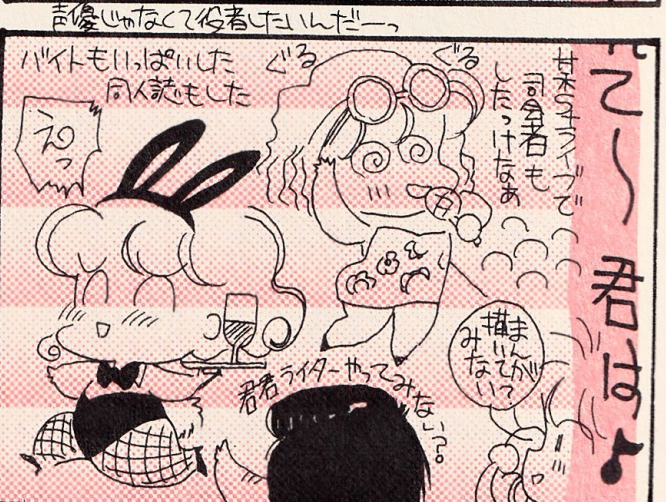 声優じゃなくて役者したいんだーっ
れて〜君は♪
ライブで
司会者も
したっけなぁ
ぐる
ぐる
バイトもいっぱいした
同人誌もした
えっ
まんが
描いて
みない?
君君ライターやってみない?。